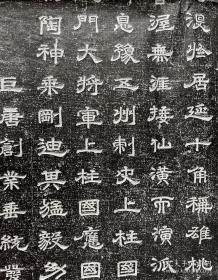 居延十角稱雄桃
渥無涯接仙潢而演派
息豫五州刺史上柱國
門大將軍上柱國應國
陶神乘剛迪其猛毅
巨唐創業垂統